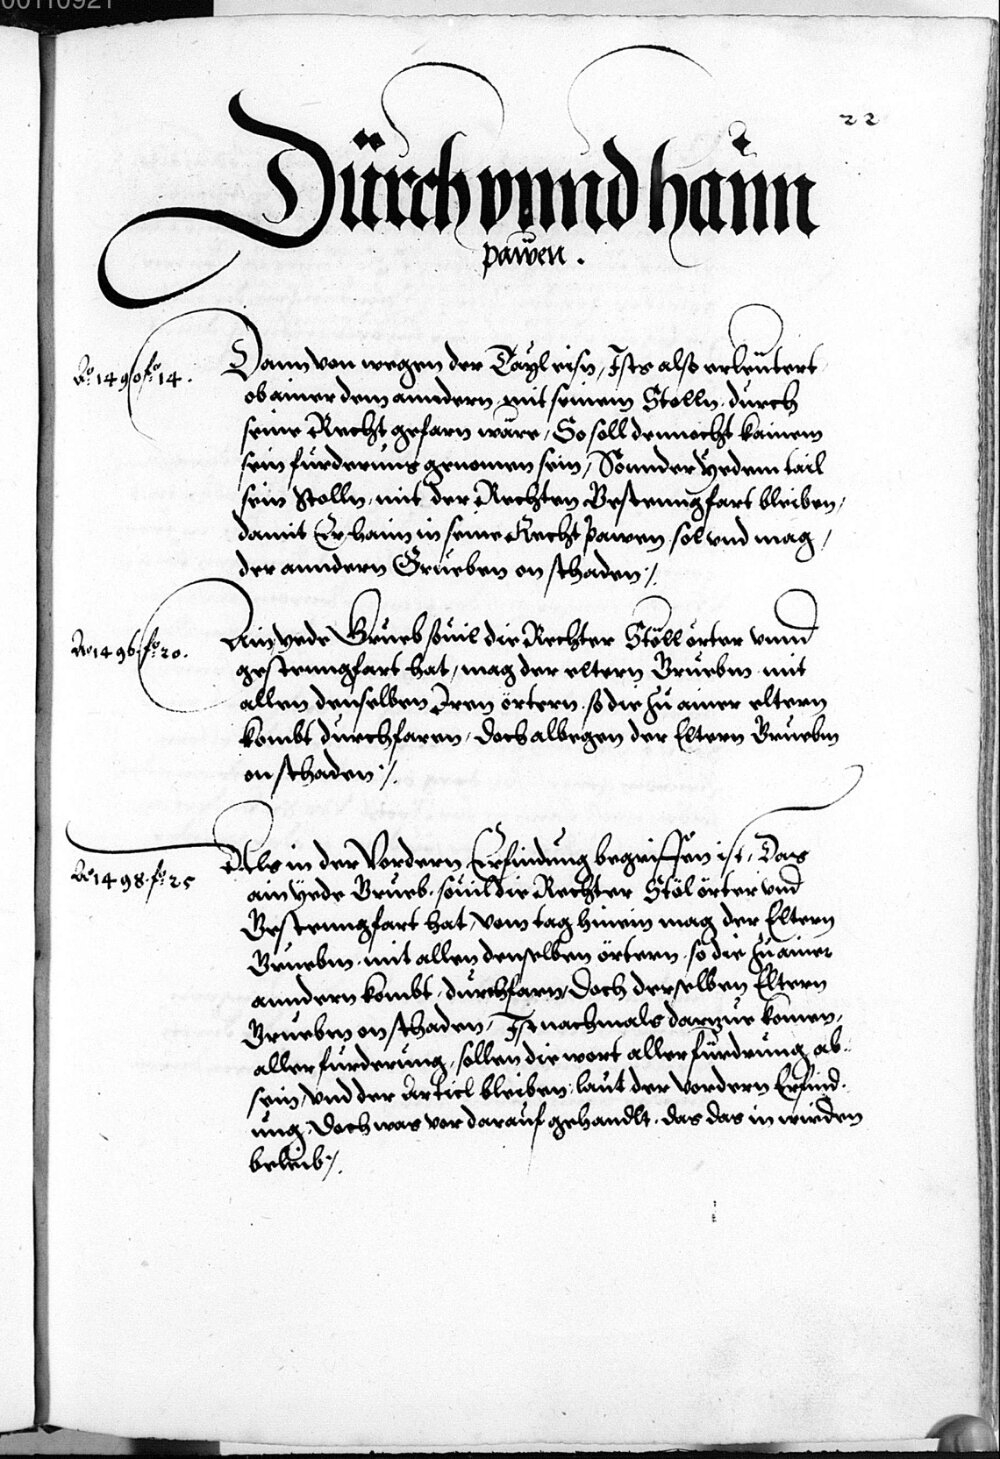 00110921
22
Dürch vnnd haim
pawen.
Ao. 1490 fo. 14.
Dann von wegen der Tayl eisn, Ists also erleutert
ob ainer dem anndern mit seinem Stolln durch
seine Recht gefarn wäre, So soll dennocht kainem
sein fürderung genomen sein, Sonnder yedem tail
sein Stolln, mit der Rechten Gestenngfart bleiben,
damit Er haim in seine Recht pawen sol vnd mag,
der anndern Grueben on schaden:/.
Ao 1496. fo. 20.
Ain yede Grueb souil die Rechter Stöllörter vnnd
gestenngfart hat, mag der eltern Gruebm mit
allen denselben Iren örtern so die zu ainer eltern
kombt durchfaren, doch albegen der Eltern Gruebm
on schaden:/.
Ao 1498. fo. 25
Als in der Vordern Erfindung begriffen ist, Das
ain yede Grueb, souil die Rechter Stölörter vnd
Gestenngfart hat, vom tag hinein mag der Eltern
Gruebm mit allen denselben örtern so die zu ainer
anndern kombt, durchfarn, Doch derselben Eltern
Gruebm on schaden, Ist nachmals darzue komen,
aller furderung, sollen die wort aller fürdrung ab
sein, vnd der Articl bleiben, laut der vordern Erfind-
ung, Doch was vor darauf gehandlt, das das in wirden
beleib:/.